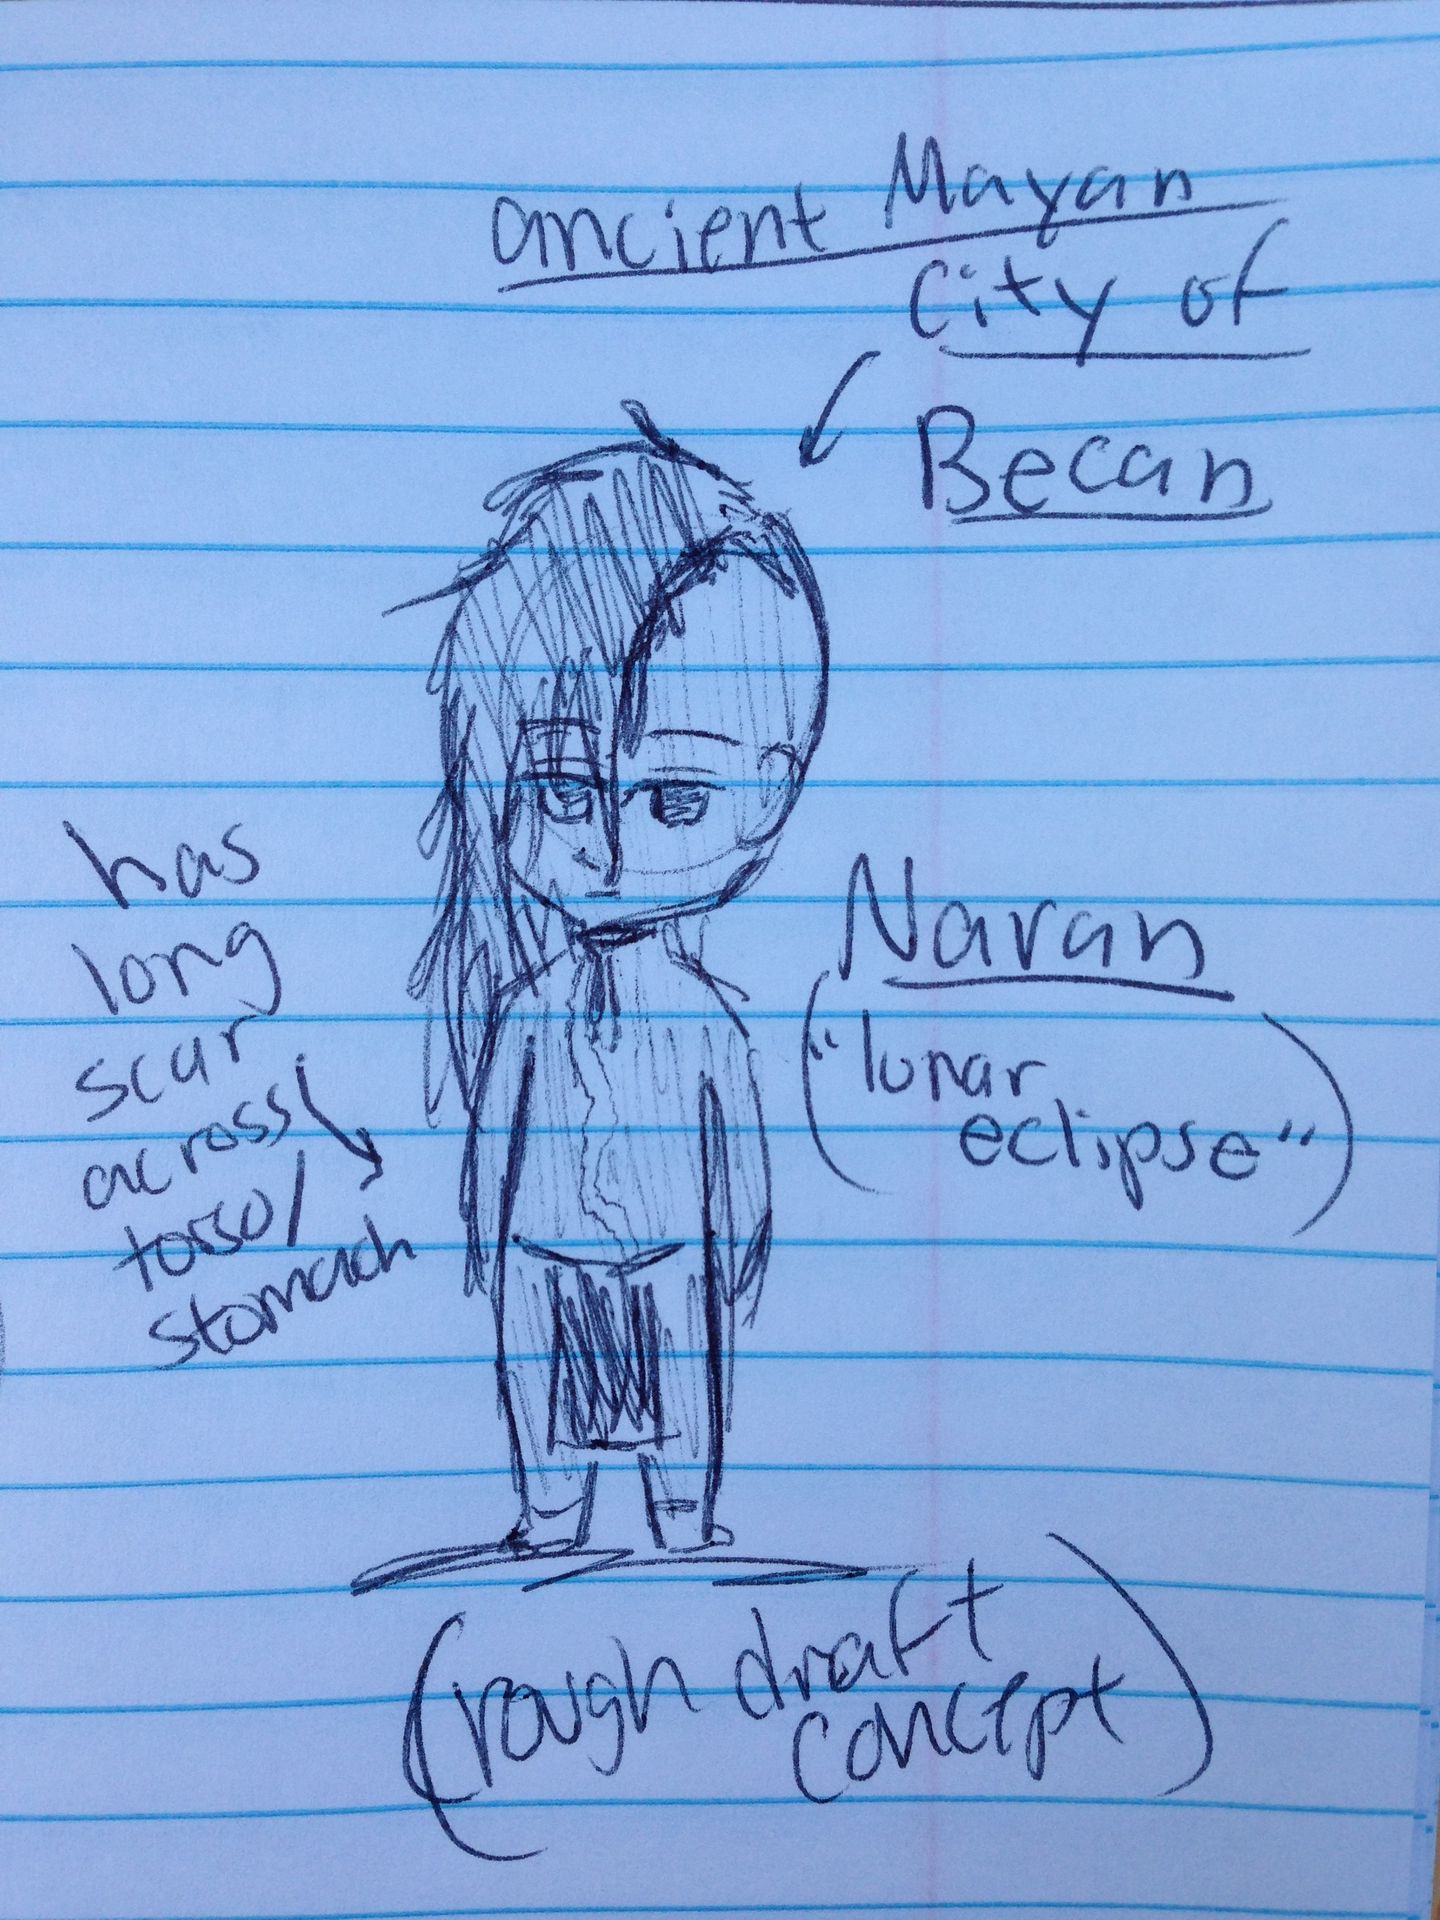 ancient Mayan
City of
Becan
has
long
scar
across
torso/
stomach
Naran
("lunar
eclipse")
(rough draft
concept)